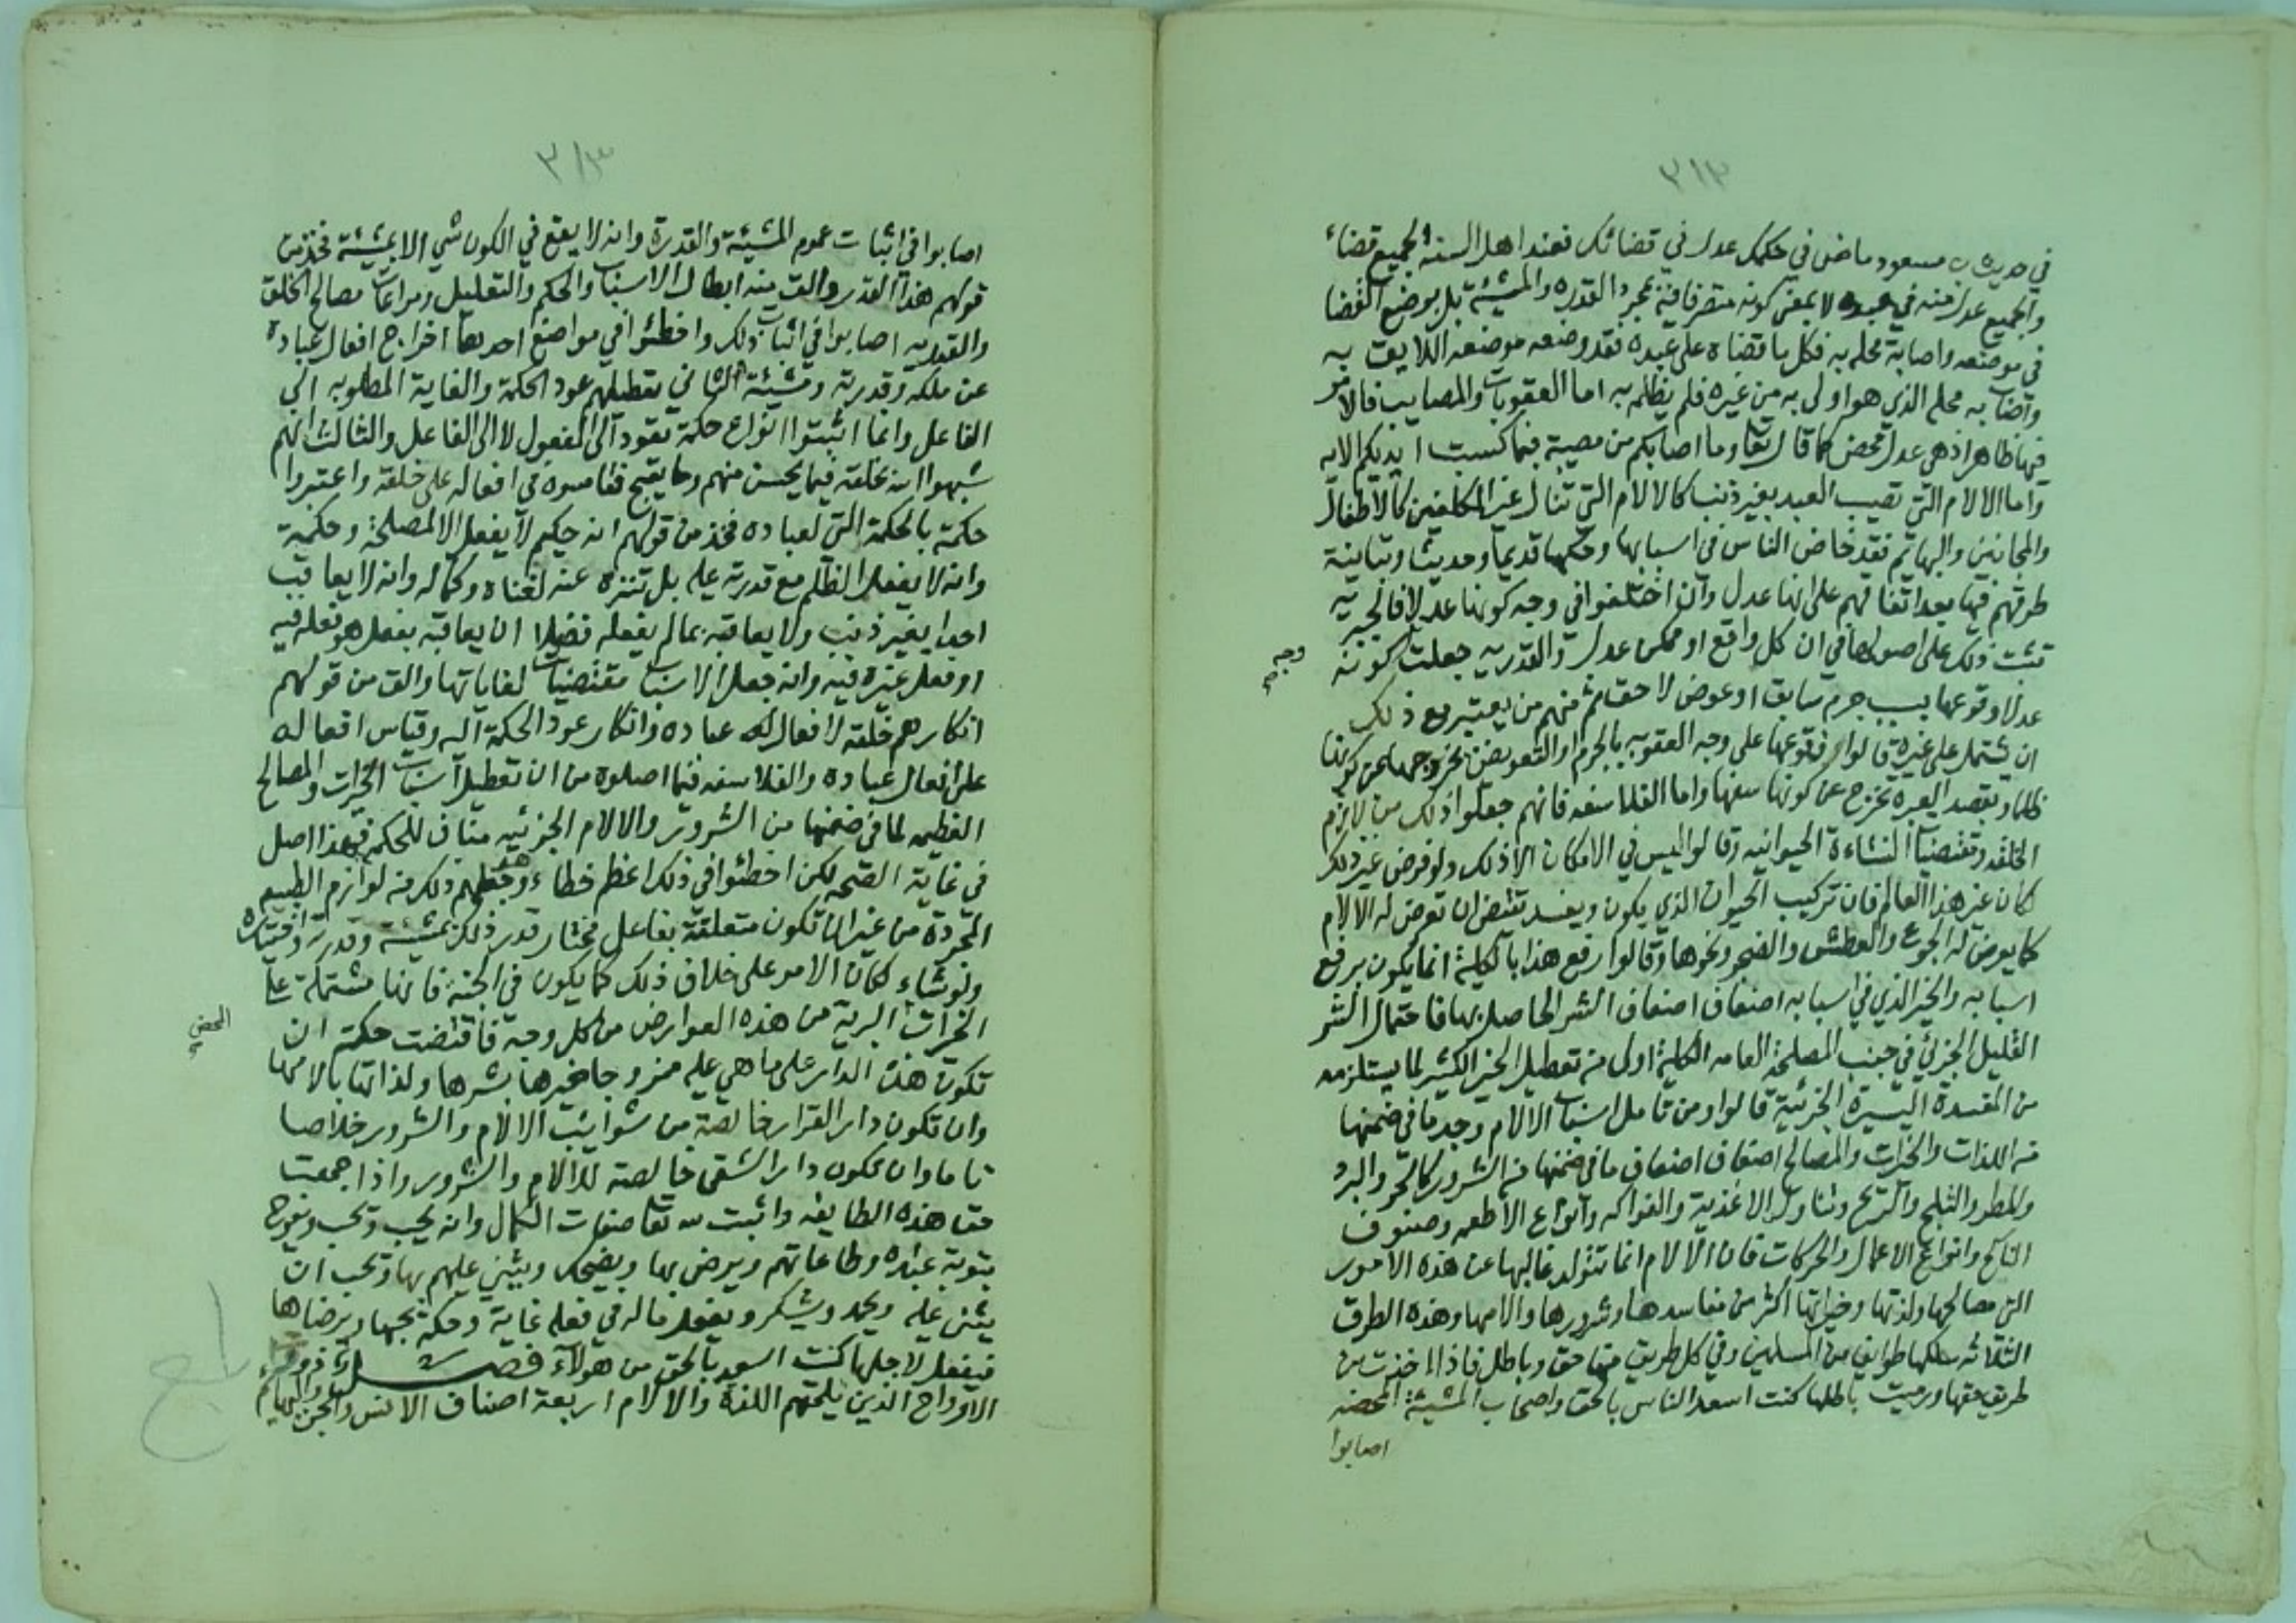 ٣١٢
في حديث ابن مسعود ماض في حكمك عدل في قضائك فعند اهل السنة الجميع قضاء
والجميع عدل منه في عبده لا بمعنى كونه متصرفا فيه بمجرد القدره والمشيئة بل بوضع القضا
في موضعه واصابة محله به فكل ما قضاه على عبده فقد وضعه موضعه اللايق به
واصاب به محله الذي هو اولى به من غيره فلم يظلمه به اما العقوبات والمصايب فالامر
فيها ظاهر اذ هي عدل محض كما قال تعا وما اصابكم من مصيبة فبما كسبت ايديكم الايه
واما الالام التي تصيب العبد بغير ذنب كالالام التي تنال غير المكلفين كالاطفال
والمجانين والبهائم فقد خاض الناس في اسبابها وحكمها قديما وحديثا وتباينة
طرقهم فيها بعد اتفاقهم على انها عدل وان اختلفوا في وجه كونها عدلا فالجبريه
تثبت ذلك على اصولها في ان كل واقع او ممكن عدل والقدريه جعلت كونه
وجه صح
عدلا وقوعها بسبب جرم سابق او عوض لاحق ثم منهم من يعتبر مع ذلك
ان يشتمل على غيره قالوا فوقوعها على وجه العقوبه بالجرم او التعويض يخرجها عن كونها
ظلما وبقصد العبره تخرج عن كونها سفها واما الفلاسفه فانهم جعلوا ذلك من لازم
الخلقه ومقتضيات النشاءة الحيوانيه وقالوا ليس في الامكان الا ذلك ولو فرض غير ذلك
كان غير هذا العالم فان تركيب الحيوان الذي يكون ويفسد تقتضي ان تعرض له الالام
كما يعرض له الجوع والعطش والضجر ونحوها وقالوا رفع هذا بالكلية انما يكون برفع
اسبابه والخير الذي في اسبابه اضعاف اضعاف الشر الحاصل بها فاحتمال الشر
القليل الجزئي في جنب المصلحة العامه الكلية اولى من تعطيل الخير الكثير لما يستلزمه
من المفسدة اليسيرة الجزئية قالوا ومن تامل اسباب الالام وجد ما في ضمنها
من اللذات والخيرات والمصالح اضعاف اضعاف ما في ضمنها من الشرور كالحر والبرد
والمطر والثلج والريح وتناول الاغذية والفواكه وانواع الاطعمه وصنوف
المناكح وانواع الاعمال والحركات فان الالام انما تتولد غالبها عن هذه الامور
التي مصالحها ولذتها وخيراتها اكثر من مفاسدها وشرورها والامها وهذه الطرق
الثلاثه سلكها طوايف من المسلمين وفي كل طريق منها حق وباطل فاذا اخذت من
طريق حقها ورميت باطلها كنت اسعد الناس بالحق واصحاب المشيئة المحضه
اصابوا
٣١٣
اصابوا في اثبات عموم المشيئة والقدرة وانه لا يقع في الكون شي الا بمشيئة فخذ من
قولهم هذا القدر والق منه ابطال الاسباب والحكم والتعليل ومراعات مصالح الخلق
والقدريه اصابوا في اثبات ذلك واخطئوا في مواضع احدها اخراج افعال عباده
عن ملكه وقدرته ومشيئة الثاني تعطيلهم عود الحكمة والغاية المطلوبه الى
الفاعل وانما اثبتوا انواع حكمة تعود الى المفعول لا الى الفاعل والثالث انهم
شبهوا الله بخلقه فيما يحسن منهم وما يقبح فقاسوه في افعاله على خلقه واعتبروا
حكمة بالحكمة التي لعباده فخذ من قولهم انه حكيم لا يفعل الا لمصلحة وحكمة
وانه لا يفعل الظلم مع قدرته عليه بل تنزه عنه لغناه وكماله وانه لا يعاقب
احدا بغير ذنب ولا يعاقبه بما لم يفعله فضلا ان يعاقبه بفعل هو فعله فيه
او فعل غيره فيه وانه جعل الاسباب مقتضيات لغاياتها والق من قولهم
انكارهم خلقه لافعال عباده وانكار عود الحكمة اليه وقياس افعاله
على افعال عباده والفلاسفه فيما اصلوه من ان تعطيل اسباب الخيرات والمصالح
العظيمه لما في ضمنها من الشرور والالام الجزئيه مناف للحكمه فهذا اصل
في غاية الصحه لكن اخطئوا في ذلك اعظم خطاء وهو جعلهم ذلك من لوازم الطبيعه
المجردة من غير ان تكون متعلقة بفاعل مختار قدر ذلك بمشيئته وقدرته واختياره
ولو شاء لكان الامر على خلاف ذلك كما يكون في الجنة فانها مشتملة على
الخيرات البرية من هذه العوارض من كل وجه فاقتضت حكمته ان
المحضه صح
تكون هذه الدار على ما هي عليه ممزوجا خيرها بشرها ولذاتها بالامها
وان تكون دار القرار خالصة من شوائب الالام والشرور خلاصا
تاما وان تكون دار الشقى خالصة للالام والشرور واذا جمعت
حق هذه الطايفه واثبت لله تعا صفات الكمال وانه يحب ويحب ويفرح
بتوبة عباده وطاعاتهم ويرضى بها ويضحك ويثني عليهم بها ويحب ان
يثنى عليه ويحمد ويشكر ويفعل ماله في فعله غاية وحكمة يحبها ويرضاها
فيفعل لاجلها كنت اسعد بالحق من هؤلاء فصل
الارواح الذين يلحقهم اللذة والالام اربعة اصناف الانس والجن والبهايم